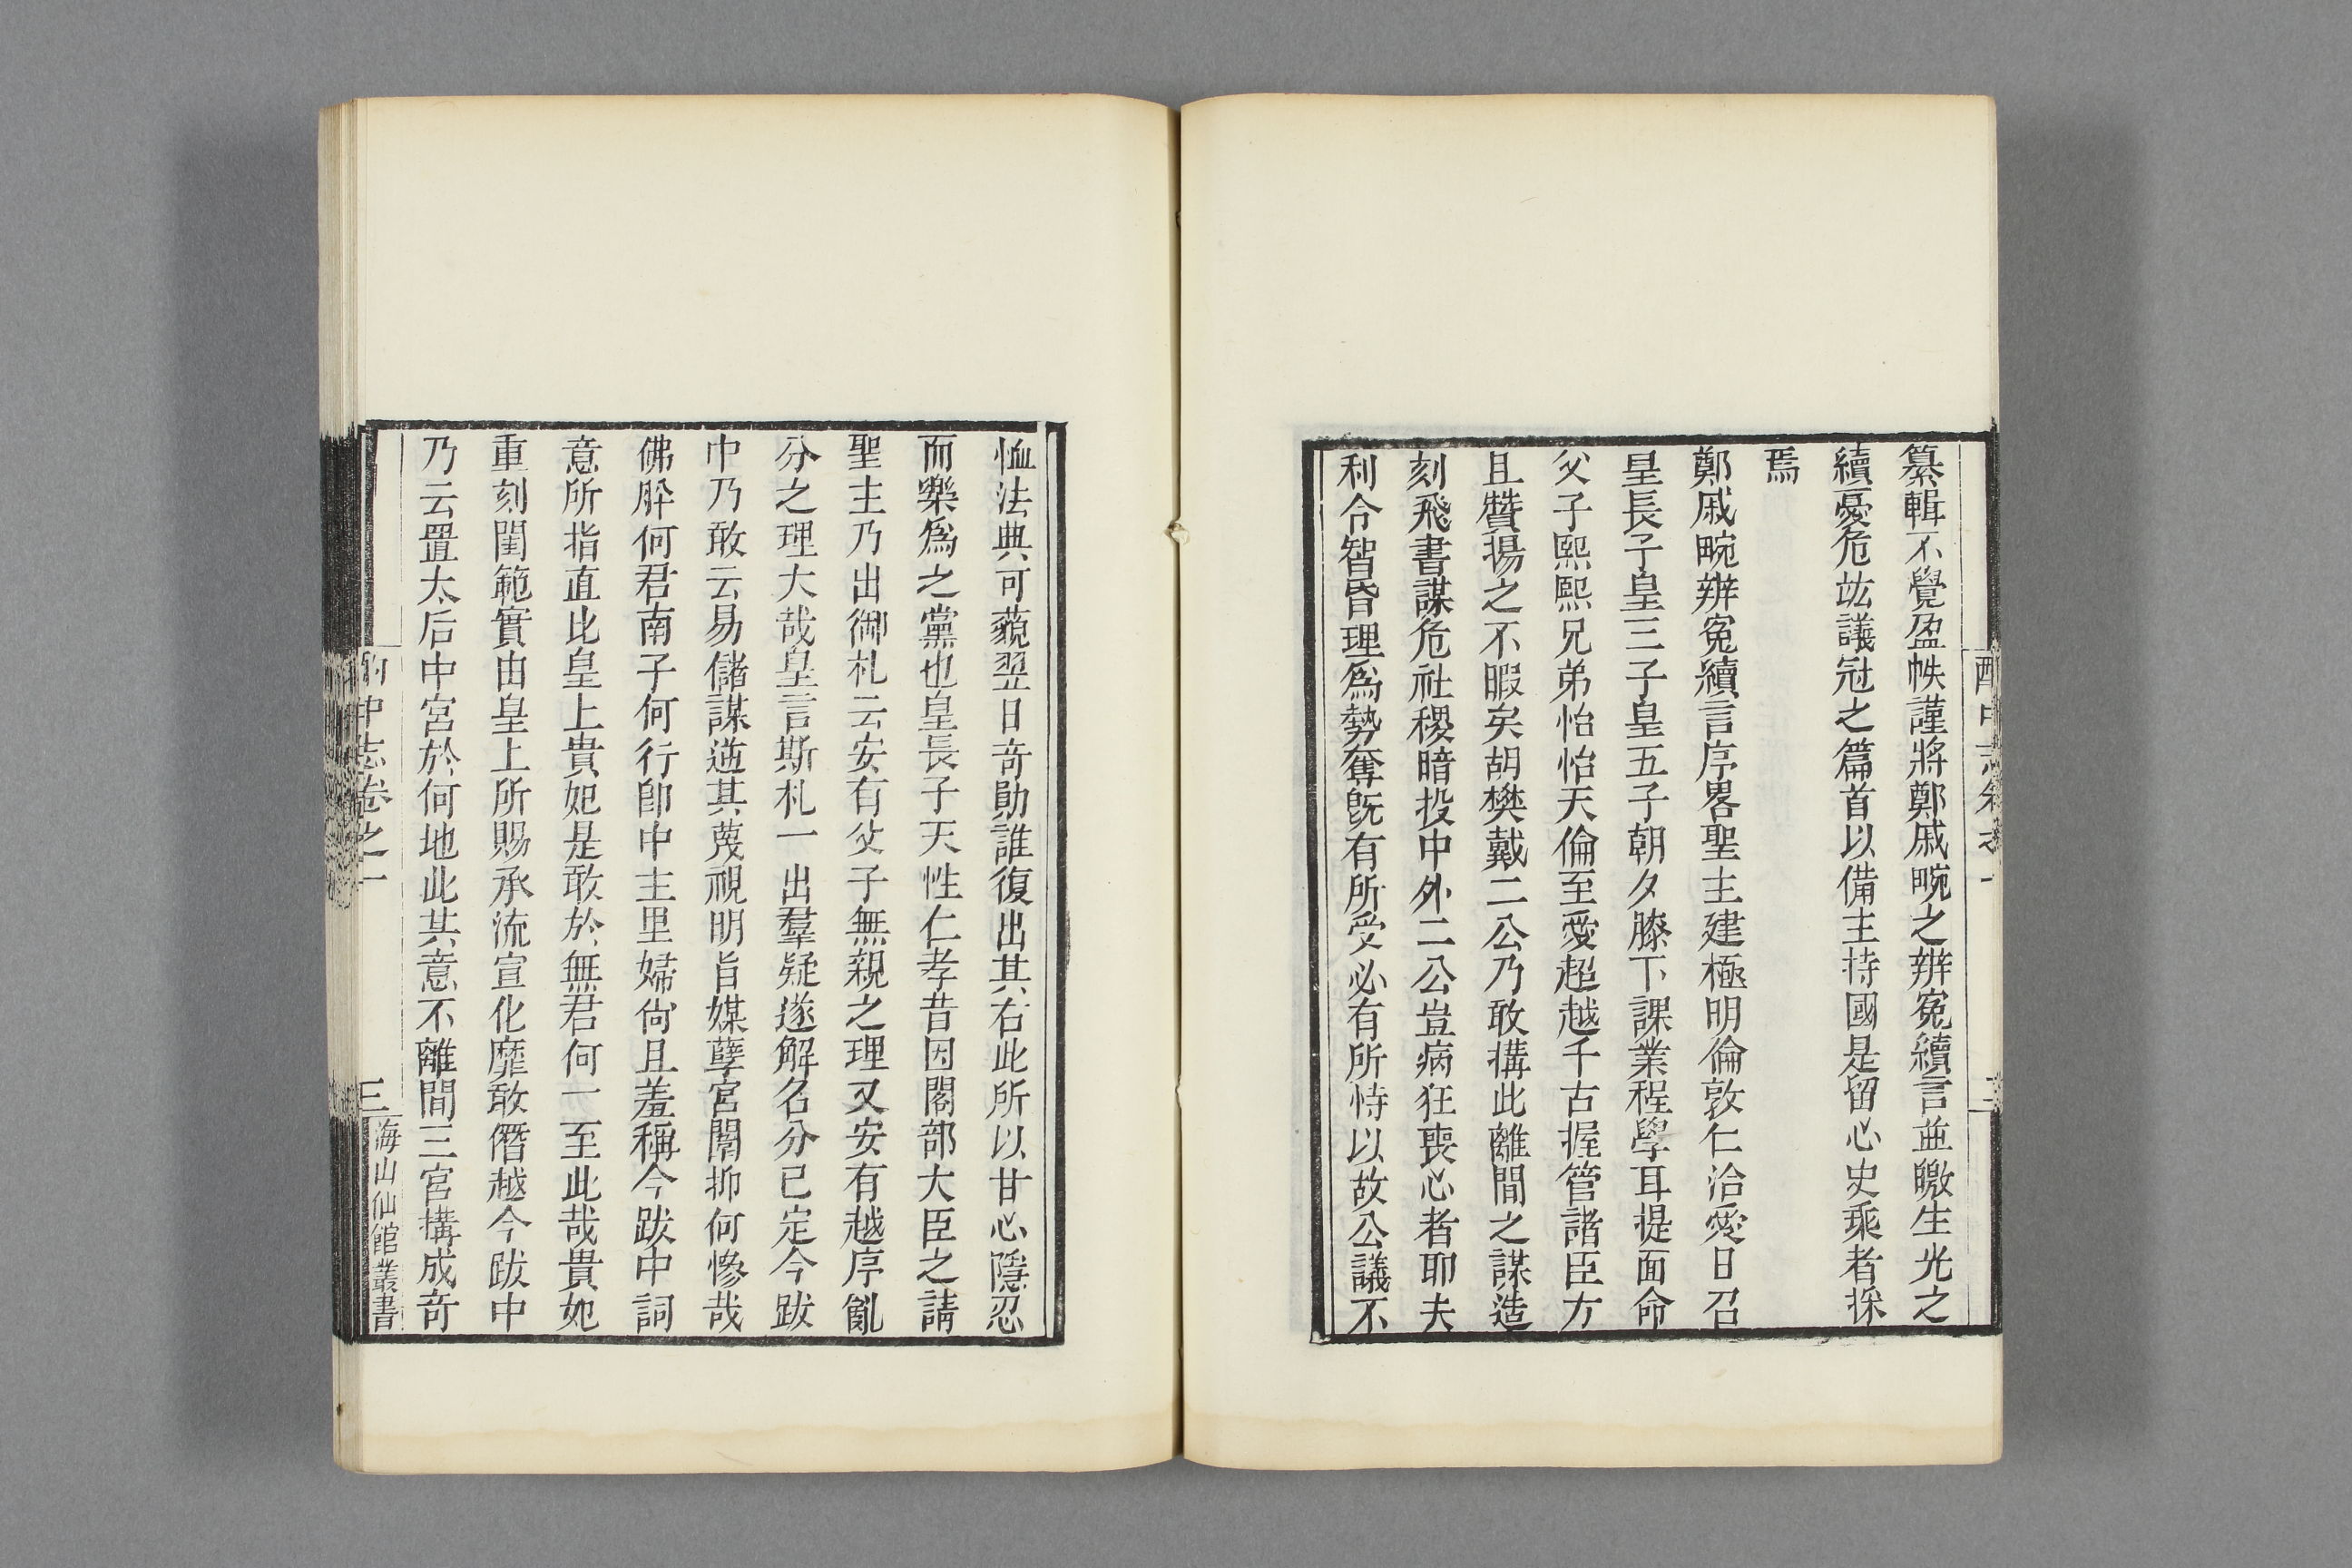 酌中志卷之一
纂輯不覺盈帙謹將鄭戚畹之辨寃續言並皦生光之
續憂危竑議冠之篇首以備主持國是留心史乘者採
焉
鄭戚畹辨寃續言序畧聖主建極明倫敦仁洽愛日召
皇長子皇三子皇五子朝夕膝下課業程學耳提面命
父子熙熙兄弟怡怡天倫至愛超越千古握管諸臣方
且贊揚之不暇矣胡樊戴二公乃敢搆此離間之謀造
刻飛書謀危社稷暗投中外二公豈病狂喪心者耶夫
利令智昏理爲勢奪旣有所受必有所恃以故公議不
恤法典可藐翌日奇勛誰復出其右此所以甘心隱忍
而樂爲之黨也皇長子天性仁孝昔因閣部大臣之請
聖主乃出御札云安有父子無親之理又安有越序亂
分之理大哉皇言斯札一出羣疑遂解名分已定今跋
中乃敢云易儲謀逆其蔑視明旨媒孽宮闈抑何慘哉
佛肸何君南子何行卽中主里婦尙且羞稱今跋中詞
意所指直比皇上貴妃是敢於無君何一至此哉貴妃
重刻閨範實由皇上所賜承流宣化靡敢僭越今跋中
乃云置太后中宮於何地此其意不離間三宮搆成奇
酌中志卷之一
三
海山仙館叢書